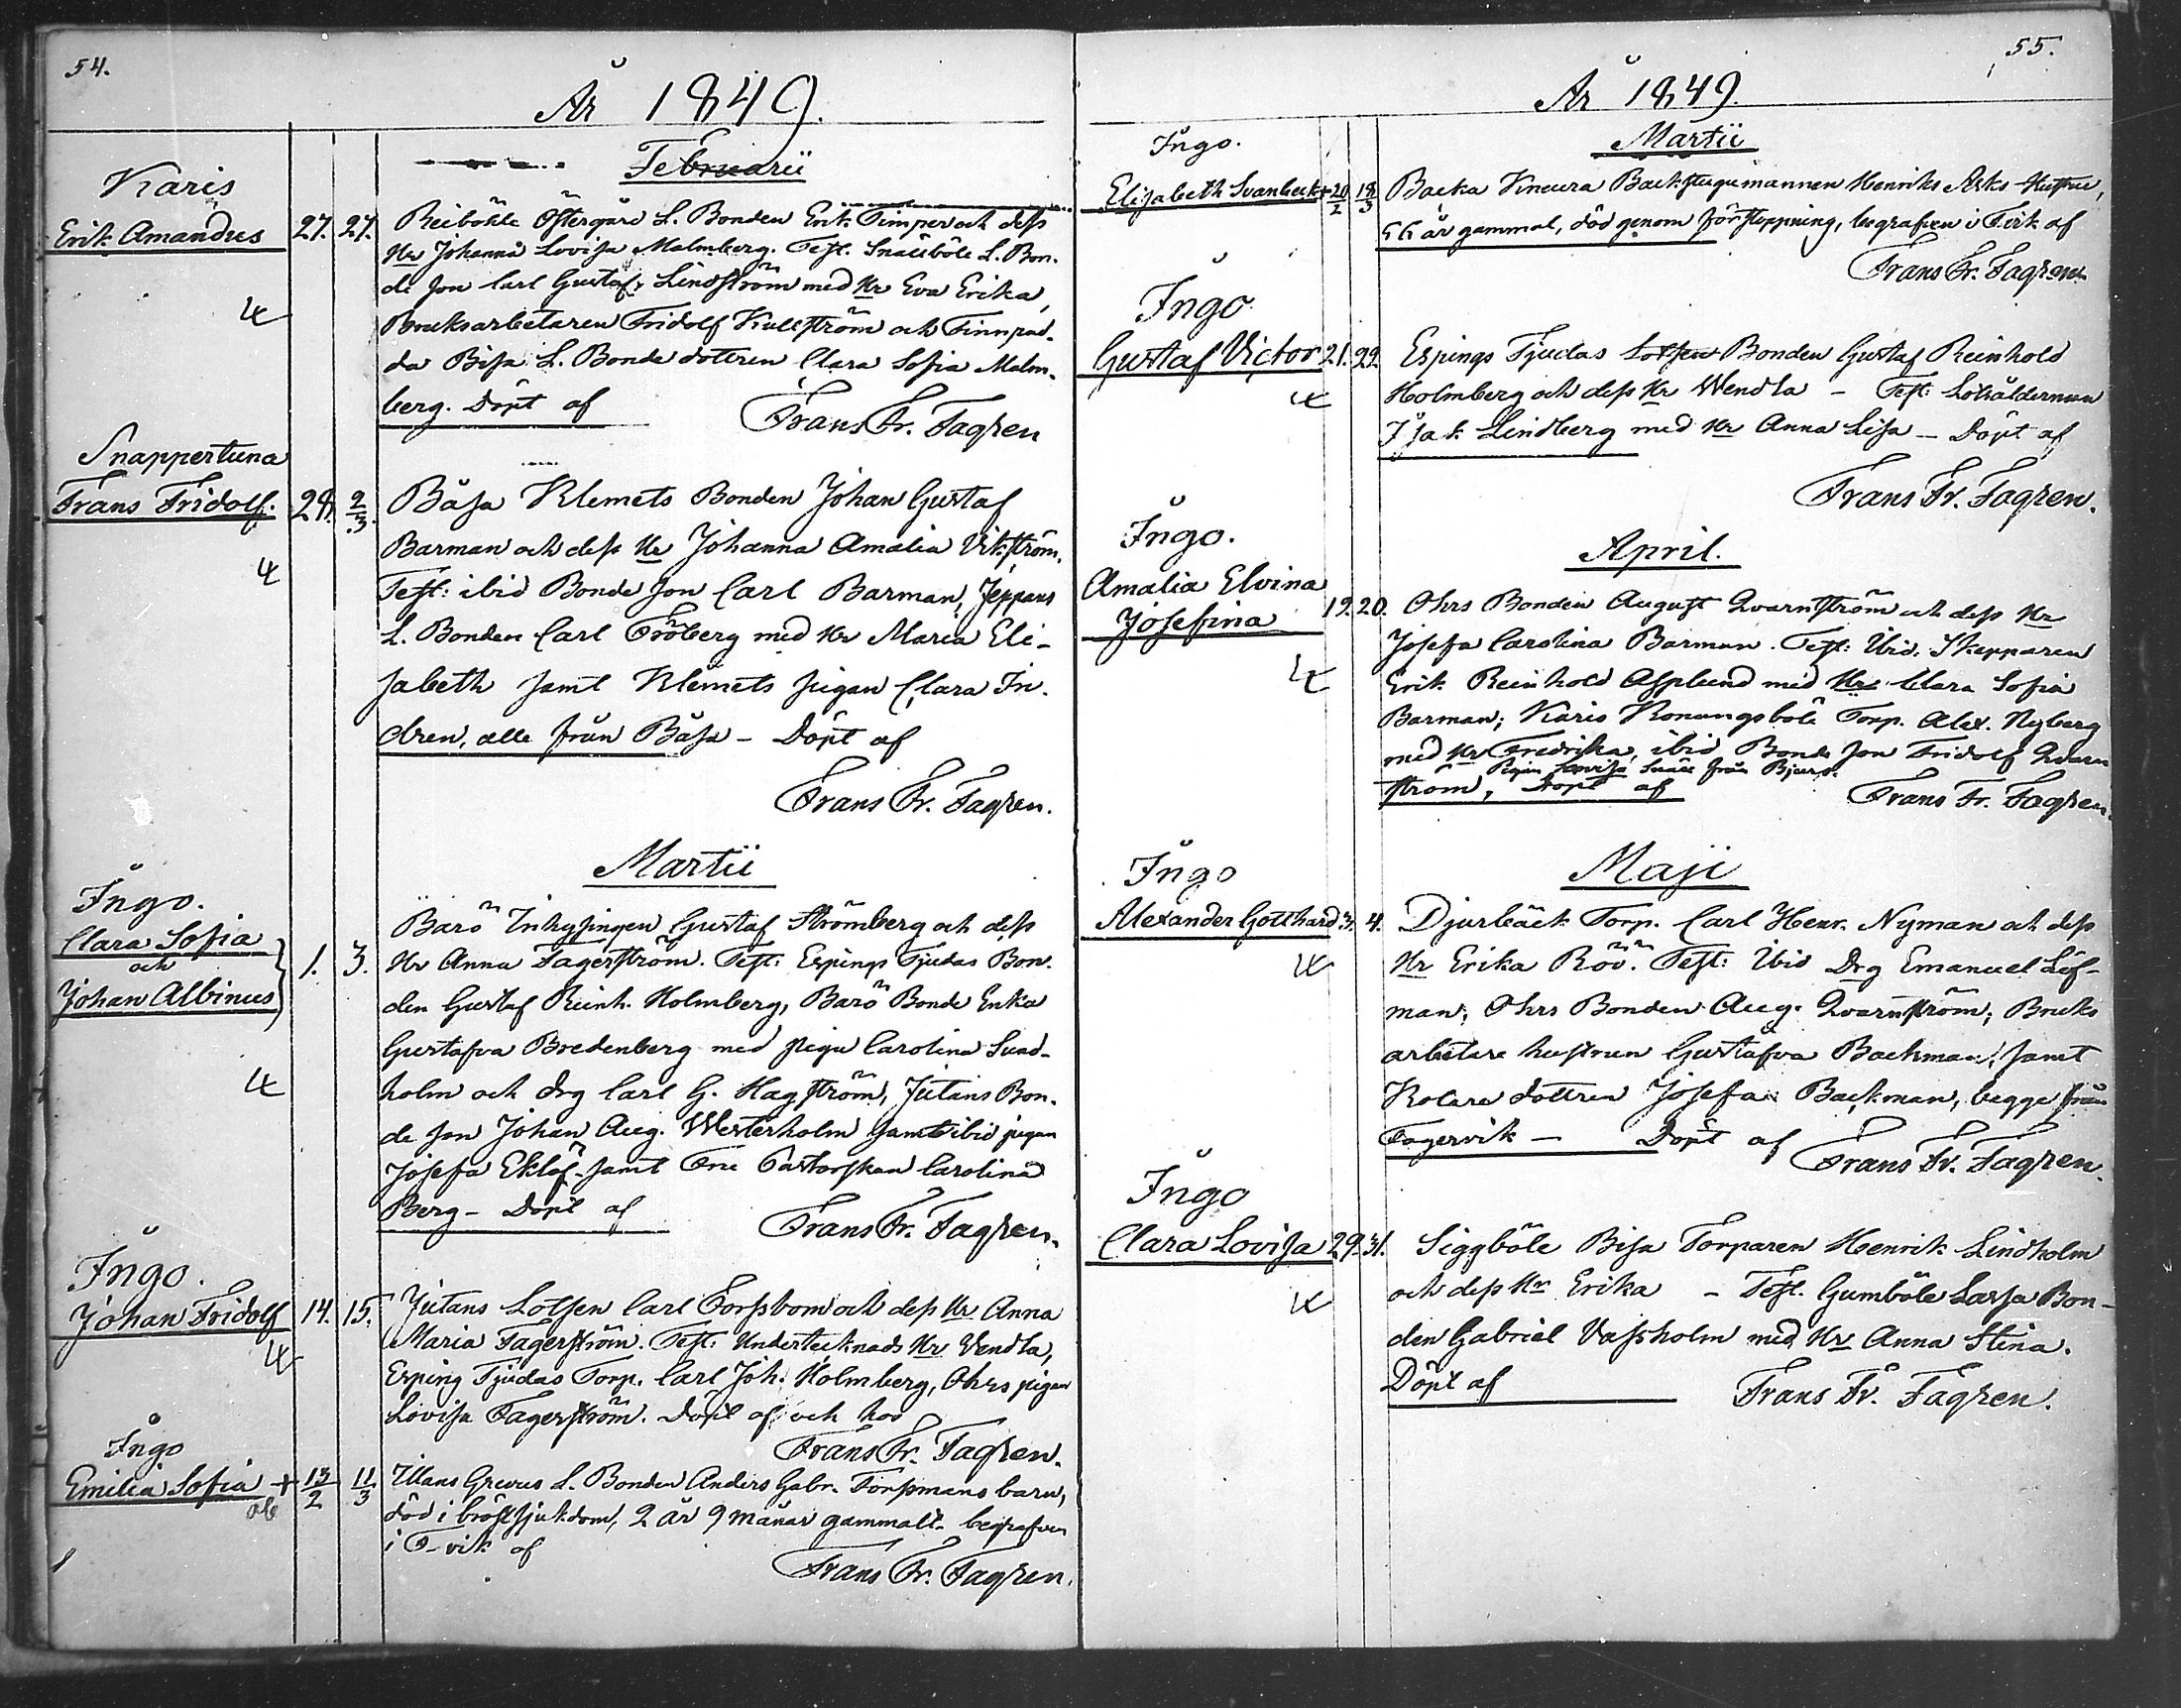 54.
År 1849.
Februarii
Karis
Erik Amandus 27. 27. Reiböhle Östergård L. Bonden Erik Timper och dess
Hu Johanna Lovisa Malmberg. Test. Snällböle L. Bon-
de son Carl Gustaf Lindström med Hu Eva Erika,
Bruksarbetaren Fridolf Kullström och Finnpad-
da Bisa L. Bonde dottren Clara Sofia Malm-
berg. Döpt af
Frans Fr. Fagren
Snappertuna
Frans Fridolf. 28. 2/3. Båsa Klemets Bonden Johan Gustaf
Barman och dess Hu Johanna Amalia Vikström.
Test: ibid Bonde son Carl Barman, Jeppans
L. Bonden Carl Fröberg med Hu Maria Eli-
sabeth samt Klemets pigan Clara In-
dren, alle från Båsa - Döpt af
Frans Fr. Fagren.
Martii
Ingo.
Clara Sofia
och
Johan Albinus
1. 3. Barö Inhysingen Gustaf Strömberg och dess
Hu Anna Fagerström. Test: Espings Tjudas Bon-
den Gustaf Reinh. Holmberg, Barö Bonde Enka
Gustafva Bredenberg med pigu Carolina Sund-
holm och drg Carl G. Hagström, Jutans Bon-
de son Johan Aug. Westerholm samt ibid pigan
Josefa Eklöf samt Fru Pastorskan Carolina
Berg - Döpt af
Frans Fr. Fagren.
Ingo.
Johan Fridolf 14. 15. Jutans Lotsen Carl Forssbom och dess Hu Anna
Maria Fagerström. Test: Undertecknads Hu Vendla,
Esping Tjudas Torp. Carl Joh. Holmberg, Ohrs pigan
Lovisa Fagerström. Döpt af och hos
Frans Fr. Fagren.
Ingo
Emilia Sofia + 13/2 11/3 Illans Greeus L. Bonden Anders Gabr. Forssmans barn,
död i bröstsjukdom, 2 år 9 månar gammalt. begrafven
i F-vik af
Frans Fr. Fagren.
55.
År 1849.
Martii
Ingo.
Elisabeth Svanbeck + 20/2 18/3 Backa Backstugumannen Henriks Arks Hustru,
56 år gammal, död genom förstoppning, begrafven i F.vik af
Frans Fr. Fagren.
Ingo
Gustaf Victor 21. 22. Espings Tjudas Lotsen Bonden Gustaf Reinhold
Holmberg och dess Hu Wendla - Test: Lotsåldermun
Isak Lindberg med Hu Anna Lisa - Döpt af
Frans Fr. Fagren.
April.
Ingo.
Amalia Elvina
Josefina 19. 20. Ohrs Bonden August Qvarnström och dess Hu
Josefa Carolina Barman. Test: Ibid. Skepparen
Erik Reinhold Asplund med Hu Clara Sofia
Barman; Karis Konungsböle Torp. Alex. Nyberg
med Hu Fredrika, ibid Bonde son Fridolf Qvarn
Pigan Lovisa Snäll från
ström, Döpt af
Frans Fr. Fagren.
Maji
Ingo
Alexander Gotthard 3. 4. Djurbäck Torp. Carl Henr. Nyman och dess
Hu Erika Röö. Test: Ibid Drg Emanuel Löf-
man; Ohrs Bonden Aug. Qvarnström; Bruks
arbetare hustrun Gustafva Backman, samt
Kolare dottren Josefa Backman, begge från
Fagervik - Döpt af
Frans Fr. Fagren.
Ingo
Clara Lovisa 29. 31. Siggböle Bisa Torparen Henrik Lindholm
och dess Hu Erika - Test. Gumböle Larsa Bon-
den Gabriel Vassholm med Hu Anna Stina.
Döpt af
Frans Fr. Fagren.